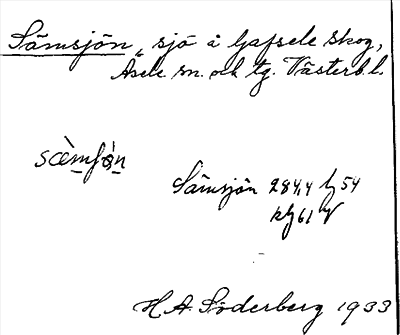 Sämsjön, sjö å Gafsele skog,
Åsele sn. och tg. Västerb.l.
Sämsjön 284,4 lj 54
klj 61 V
H. A. Söderberg 1933